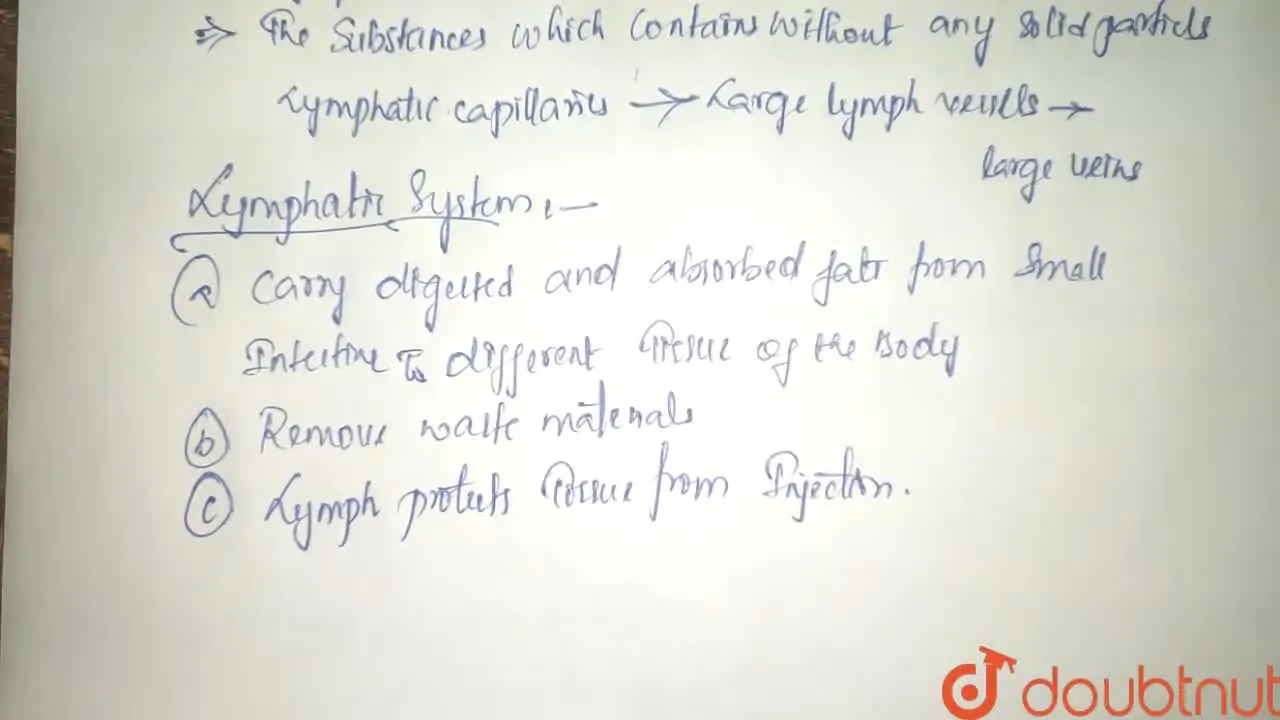 ⇒ The Substances which Contains without any solid particles
Lymphatic capillaries → Large lymph vessels →
large veins
Lymphatic System :-
(a) Carry digested and absorbed fats from Small
Intestine to different Tissue of the Body
(b) Remove waste materials
(c) Lymph protects Tissue from Injection.
doubtnut